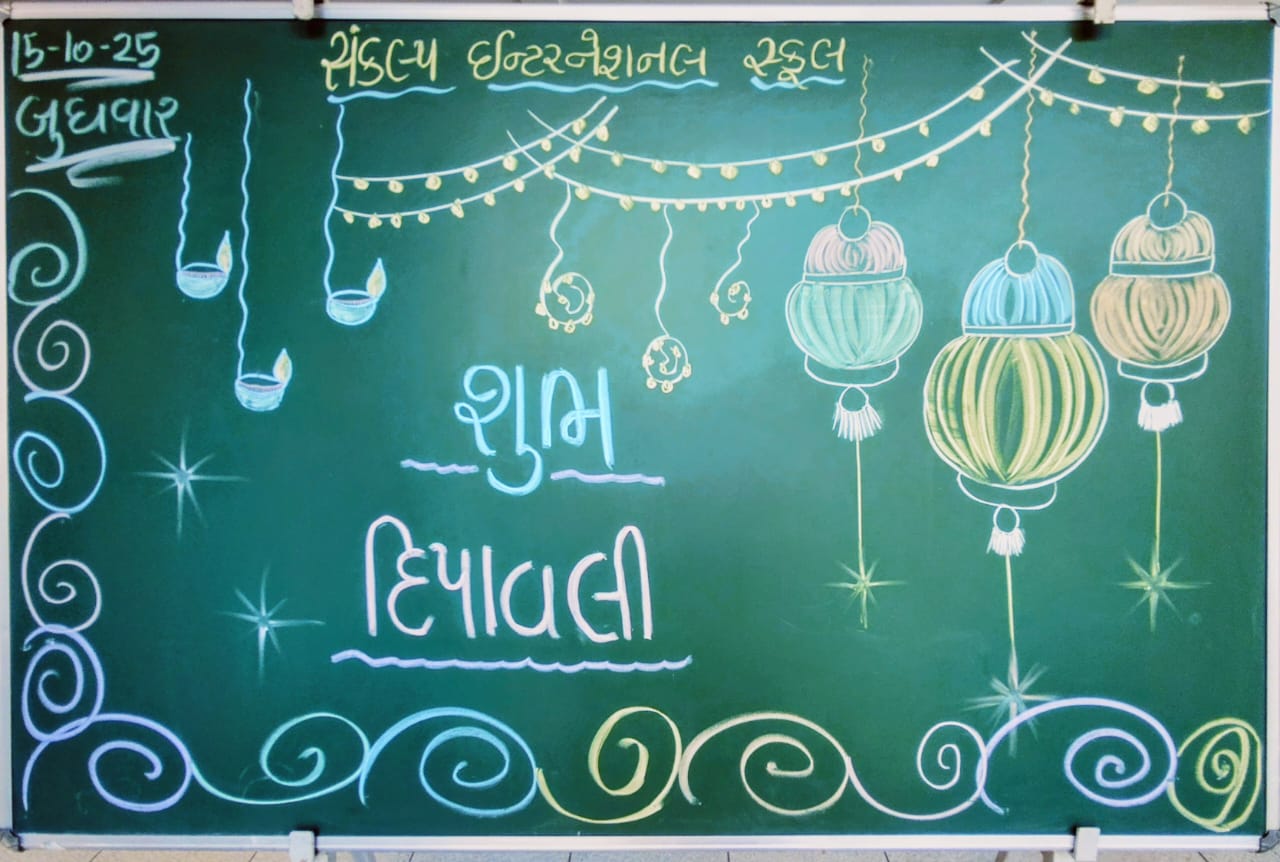 15-10-25
બુધવાર
સંકલ્પ ઈન્ટરનેશનલ સ્કૂલ
શુભ
દિપાવલી